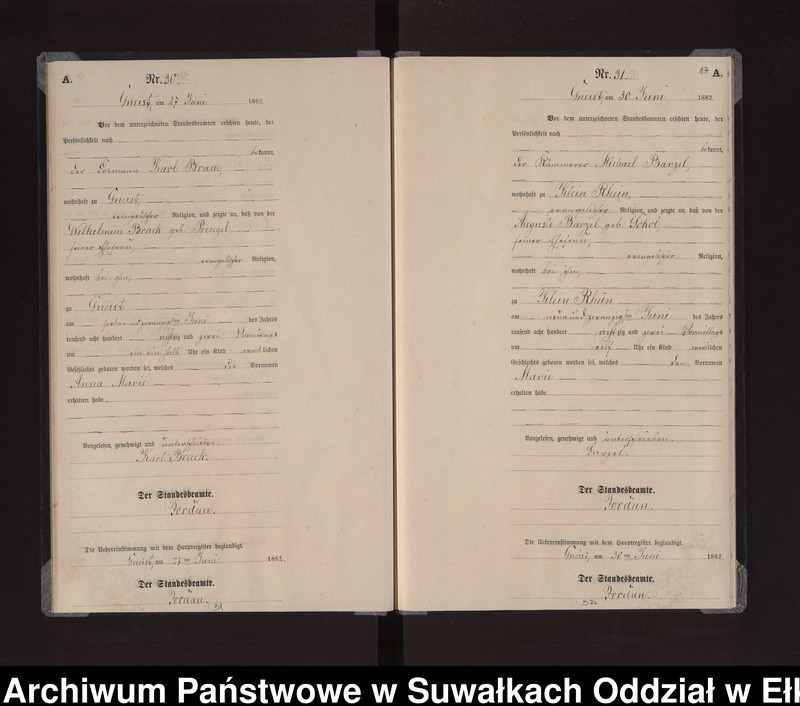 A.
Nr. 30
Gneist, am 27. Juni 1882.
Vor dem unterzeichneten Standesbeamten erschien heute, der
Persönlichkeit nach
bekannt,
der Karl Brack,
wohnhaft zu Gneist,
evangelischer Religion, und zeigte an, daß von der
Wilhelmine Brack geb.
seiner Ehefrau,
evangelischer Religion,
wohnhaft bei ihm,
zu Gneist
am sieben und zwanzigsten Juni des Jahres
tausend acht hundert achtzig und zwei Vormittags
um ein ein halb Uhr ein Kind weiblichen
Geschlechts geboren worden sei, welches die Vornamen
Anna Marie
erhalten habe.
Vorgelesen, genehmigt und unterschrieben.
Karl Brack.
Der Standesbeamte.
Jordan.
Die Uebereinstimmung mit dem Hauptregister beglaubigt.
Gneist, am 27ten Juni 1882.
Der Standesbeamte.
Jordan.
Nr. 31
17
A.
Gneist, am 30. Juni 1882.
Vor dem unterzeichneten Standesbeamten erschien heute, der
Persönlichkeit nach
bekannt,
der Kämmerer Michael Barzel,
wohnhaft zu Klein Rhein,
evangelischer Religion, und zeigte an, daß von der
Auguste Barzel geb. Sokol
seiner Ehefrau,
evangelischer Religion,
wohnhaft bei ihm,
zu Klein Rhein
am neun und zwanzigsten Juni des Jahres
tausend acht hundert achtzig und zwei Vormittags
um elf Uhr ein Kind weiblichen
Geschlechts geboren worden sei, welches den Vornamen
Marie
erhalten habe.
Vorgelesen, genehmigt und unterschrieben.
Barzel.
Der Standesbeamte.
Jordan.
Die Uebereinstimmung mit dem Hauptregister beglaubigt.
Gneist, am 30ten Juni 1882.
Der Standesbeamte.
Jordan.
Archiwum Państwowe w Suwałkach Oddział w Ełk